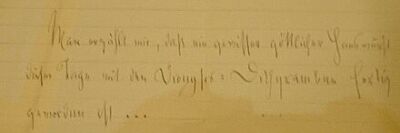 Man erzählt mir, daß ein gewisser göttlicher Hanswurst
dieser Tage mit den Dionysos-Dithyramben fertig
geworden ist ...